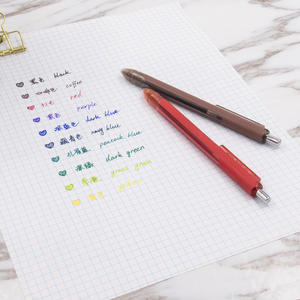 黑色 black
咖啡色 coffee
红色 red
紫色 purple
深蓝色 dark blue
藏青色 navy blue
孔雀蓝 peacock blue
深绿 dark green
草绿 grass green
黄色